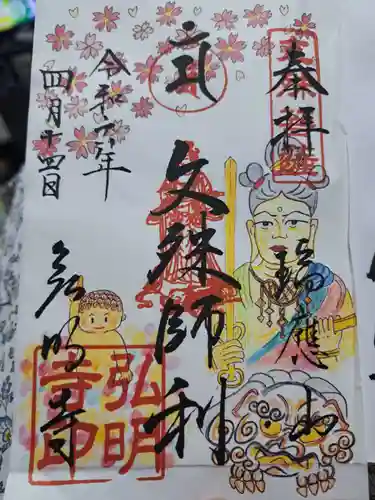 奉拝
瑞應山
文殊師利
令和六年
四月十四日
弘明寺
弘明
寺印